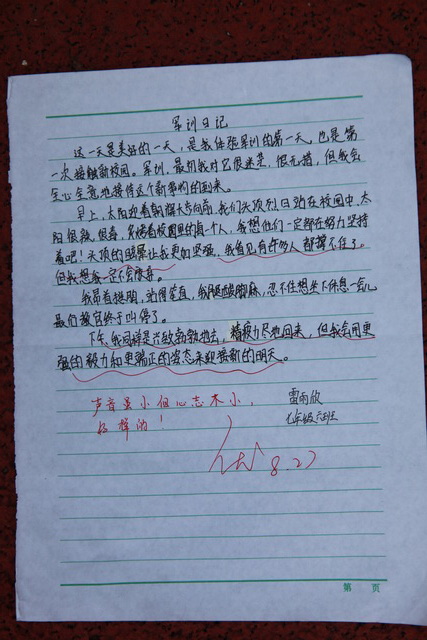 军训日记
这一天是美好的一天，是我体验军训的第一天。也是第
一次接触新校园。军训，最初我对它很迷茫，很无措，但我会
全心全意地接待这个新事物的到来。
早上，太阳迎着朝辉大步向前，我们头顶烈日站在校园中，太
阳很辣，很毒，笼烤着校园里的每一个人，我想他们一定都在努力坚持
着吧！头顶的让我更加坚强，我看见有许多人都撑不住了。
但我想我一定不会
我昂首挺胸，站得笔直，我腿麻，忍不住想坐下休息一会儿
最后教官终于叫停了。
下午，我同样是兴致勃勃地去，精疲力尽地回来，但我会用更
强的毅力和更端正的姿态来迎接新的明天。
声音虽小但心志不小，
好样的！
雷雨欣
七年级六班
8.27
第 页